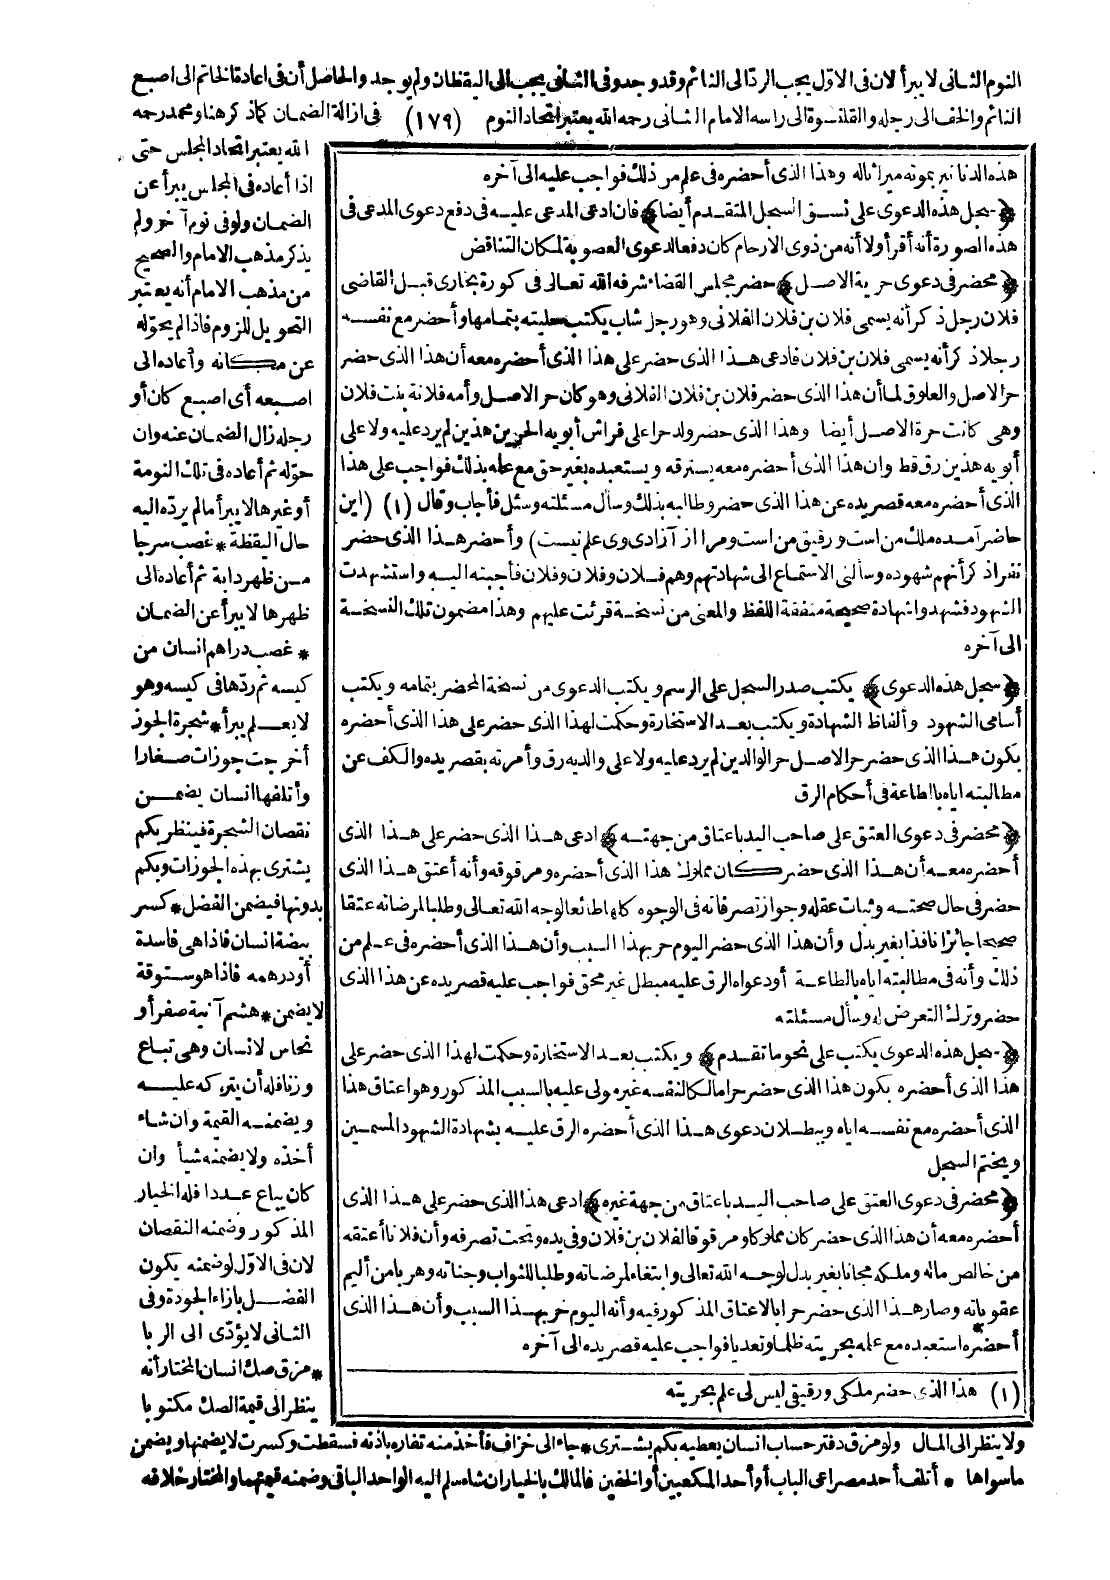 النوم الثانى لا يبرأ لان فى الاوّل يجب الردّ الى النائم وقد وجد وفى الثانى يجب الى اليقظان ولم يوجد والحاصل أن فى اعادة الخاتم الى اصبع
النائم والخف الى رجله والقلنسوة الى راسه الامام الثانى رحمه الله يعتبر اتحاد النوم (١٧٩) فى ازالة الضمان كما ذكرهنا ومحمد رحمه
الله يعتبر اتحاد المجلس حتى
اذا أعاده فى المجلس يبرأ عن
الضمان ولو فى نوم آخر ولم
يذكر مذهب الامام والصحيح
من مذهب الامام أنه يعتبر
التحويل للزوم فاذا لم يحوّله
عن مكانه وأعاده الى
اصبعه أى اصبع كان أو
رجله زال الضمان عنه وان
حوّله ثم أعاده فى تلك النومة
أو غيرها لا يبرأ ما لم يردّه اليه
حال اليقظة * غصب سرجا
من ظهر دابة ثم أعاده الى
ظهرها لا يبرأ عن الضمان
* غصب دراهم انسان من
كيسه ثم ردّها فى كيسه وهو
لا يعلم يبرأ * شجرة الجوز
أخرجت جوزات صغارا
وأتلفها انسان يضمن
نقصان الشجرة فينظر بكم
يشترى بهذه الجوزات وبكم
بدونها فيضمن الفضل * كسر
بيضة انسان فاذا هى فاسدة
أو درهمه فاذا هو ستوقة
لا يضمن * هشم آنية صفر أو
نحاس لانسان وهى تباع
وزنا فله أن يتركه عليه
ويضمنه القيمة وان شاء
أخذه ولا يضمنه شيأ وان
كان يباع عددا فله الخيار
المذكور وضمنه النقصان
لان فى الاوّل لو ضمنه يكون
الفضل بازاء الجودة وفى
الثانى لا يؤدّى الى الربا
* مزق صك انسان المختار أنه
ينظر الى قيمة الصك مكتوبا
هذه الدنانير بموته ميراثا له وهذا الذى أحضره فى علم من ذلك فواجب عليه الى آخره
﴿سجل هذه الدعوى على نسق السجل المتقدم أيضا﴾ فان ادعى المدعى عليه فى دفع دعوى المدعى فى
هذه الصورة أنه أقر أولا أنه من ذوى الارحام كان دفعا لدعوى العصوبة لمكان التناقض
﴿محضر فى دعوى حرية الاصل﴾ حضر مجلس القضاء شرفه الله تعالى فى كورة بخارى قبل القاضى
فلان رجل ذكر أنه يسمى فلان بن فلان الفلانى وهو رجل شاب يكتب حليته بتمامها وأحضر مع نفسه
رجلا ذكر أنه يسمى فلان بن فلان فادعى هذا الذى حضر على هذا الذى أحضره معه أن هذا الذى حضر
حر الاصل والعلوق لما أن هذا الذى حضر فلان بن فلان الفلانى وهو كان حر الاصل وأمه فلانة بنت فلان
وهى كانت حرة الاصل أيضا وهذا الذى حضر ولد حرا على فراش أبويه الحرين هذين لم يرد عليه ولا على
أبويه هذين رق قط وان هذا الذى أحضره معه يسترقه ويستعبده بغير حق مع علمه بذلك فواجب على هذا
الذى أحضره معه قصر يده عن هذا الذى حضر وطالبه بذلك وسأل مسئلته وسئل فأجاب وقال (١) (اين
حاضر آمده ملك من است ورقيق من است ومرا از آزادى وى علم نيست) وأحضر هذا الذى حضر
نفرا ذكر أنهم شهوده وسألنى الاستماع الى شهادتهم وهم فلان وفلان وفلان فأجبته اليه واستشهدت
الشهود فشهدوا شهادة صحيحة متفقة اللفظ والمعنى من نسخة قرئت عليهم وهذا مضمون تلك النسخة
الى آخره
﴿سجل هذه الدعوى﴾ يكتب صدر السجل على الرسم ويكتب الدعوى من نسخة المحضر بتمامه ويكتب
أسامى الشهود وألفاظ الشهادة ويكتب بعد الاستخارة وحكمت لهذا الذى حضر على هذا الذى أحضره
بكون هذا الذى حضر حر الاصل حر الوالدين لم يرد عليه ولا على والديه رق وأمرته بقصر يده والكف عن
مطالبته اياه بالطاعة فى أحكام الرق
﴿محضر فى دعوى العتق على صاحب اليد باعتاق من جهته﴾ ادعى هذا الذى حضر على هذا الذى
أحضره معه أن هذا الذى حضر كان مملوك هذا الذى أحضره ومرقوقه وأنه أعتق هذا الذى
حضر فى حال صحته وثبات عقله وجواز تصرفاته فى الوجوه كلها طائعا لوجه الله تعالى وطلبا لمرضاته عتقا
صحيحا جائزا نافذا بغير بدل وأن هذا الذى حضر اليوم حر بهذا السبب وأن هذا الذى أحضره فى علم من
ذلك وأنه فى مطالبته اياه بالطاعة أو دعواه الرق عليه مبطل غير محق فواجب عليه قصر يده عن هذا الذى
حضر وترك التعرض له وسأل مسئلته
﴿سجل هذه الدعوى يكتب على نحو ما تقدم﴾ ويكتب بعد الاستخارة وحكمت لهذا الذى حضر على
هذا الذى أحضره بكون هذا الذى حضر حرا مالكا لنفسه غير مولى عليه بالسبب المذكور وهو اعتاق هذا
الذى أحضره مع نفسه اياه وببطلان دعوى هذا الذى أحضره الرق عليه بشهادة الشهود المسمين
ويختم السجل
﴿محضر فى دعوى العتق على صاحب اليد باعتاق من جهة غيره﴾ ادعى هذا الذى حضر على هذا الذى
أحضره معه أن هذا الذى حضر كان مملوكا ومرقوقا لفلان بن فلان وفى يده وتحت تصرفه وأن فلانا أعتقه
من خالص ماله وملكه مجانا بغير بدل لوجه الله تعالى وابتغاء لمرضاته وطلبا للثواب وجناته وهربا من أليم
عقوباته وصار هذا الذى حضر حرا بالاعتاق المذكور فيه وأنه اليوم حر بهذا السبب وأن هذا الذى
أحضره استعبده مع علمه بحريته ظلما وتعديا فواجب عليه قصر يده الى آخره
(١) هذا الذى حضر ملكى ورقيقى ليس لى علم بحريته
ولا ينظر الى المال ولو مزق دفتر حساب انسان يعطيه بكم يشترى * جاء الى خزاف فأخذ منه تغاره باذنه فسقطت وكسرت لا يضمنها ويضمن
ما سواها * أتلف أحد مصراعى الباب أو أحد المكعبين أو الخفين فالمالك بالخيار ان شاء سلم اليه الواحد الباقى وضمنه قيمتهما والمختار خلافه